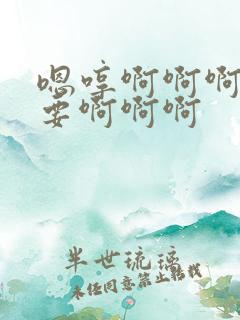 嗯哼啊啊啊
要啊啊啊
半世琉璃
未经同意禁止转载